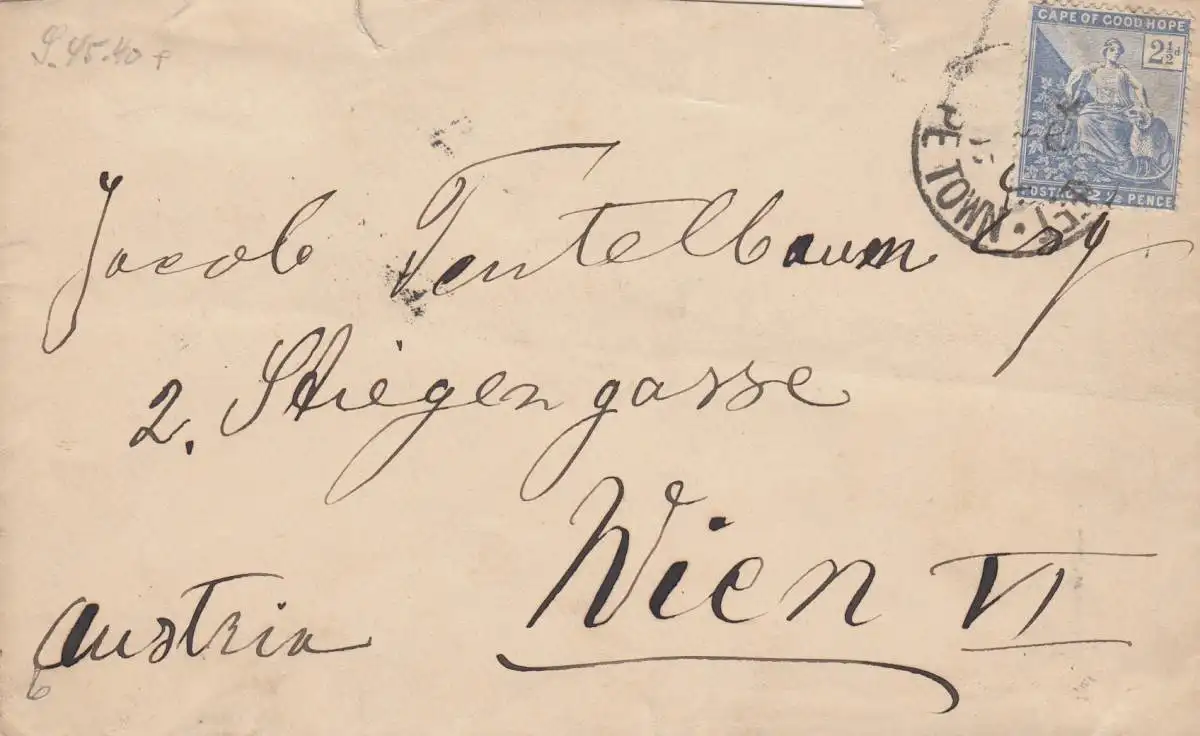 S. 45.40
CAPE OF GOOD HOPE
2½d
POSTAGE 2½ PENCE
PE TOWN
Jacob Teutelbaum Esq
2. Stiegengasse
Wien VI
Austria